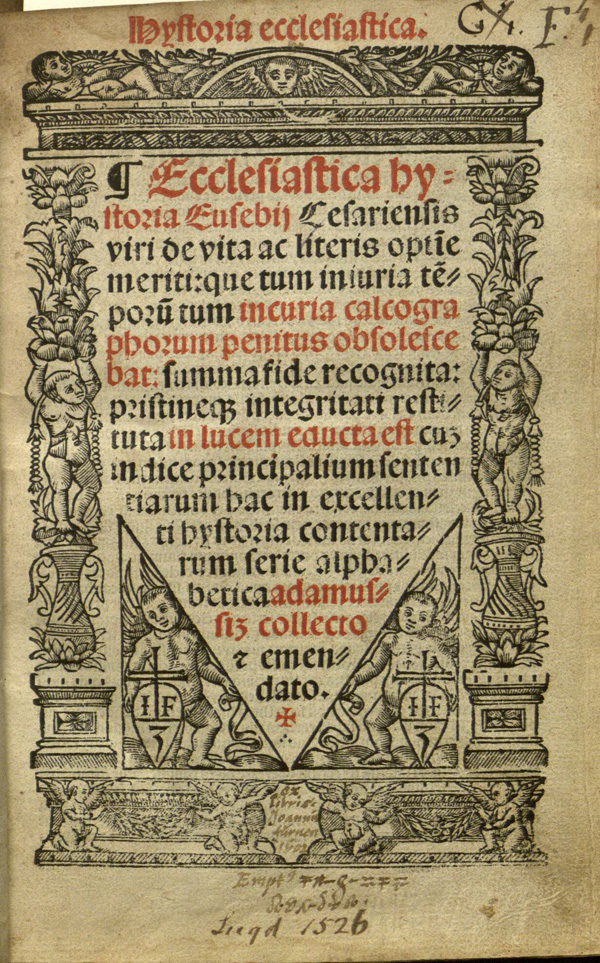 Hystoria ecclesiastica.
¶ Ecclesiastica hy⸗
storia Eusebij Cesariensis
viri de vita ac literis optīe
meriti:que tum iniuria tē⸗
porū tum incuria calcogra
phorum penitus obsolesce
bat: summa fide recognita:
pristineqꝫ integritati resti⸗
tuta in lucem educta est cuꝫ
indice principalium senten
tiarum hac in excellen⸗
ti hystoria contenta⸗
rum serie alpha⸗
betica adamus⸗
siꝫ collecto
⁊ emen⸗
dato.
I F
I F
ex
libris
Joannis
Lugd 1526